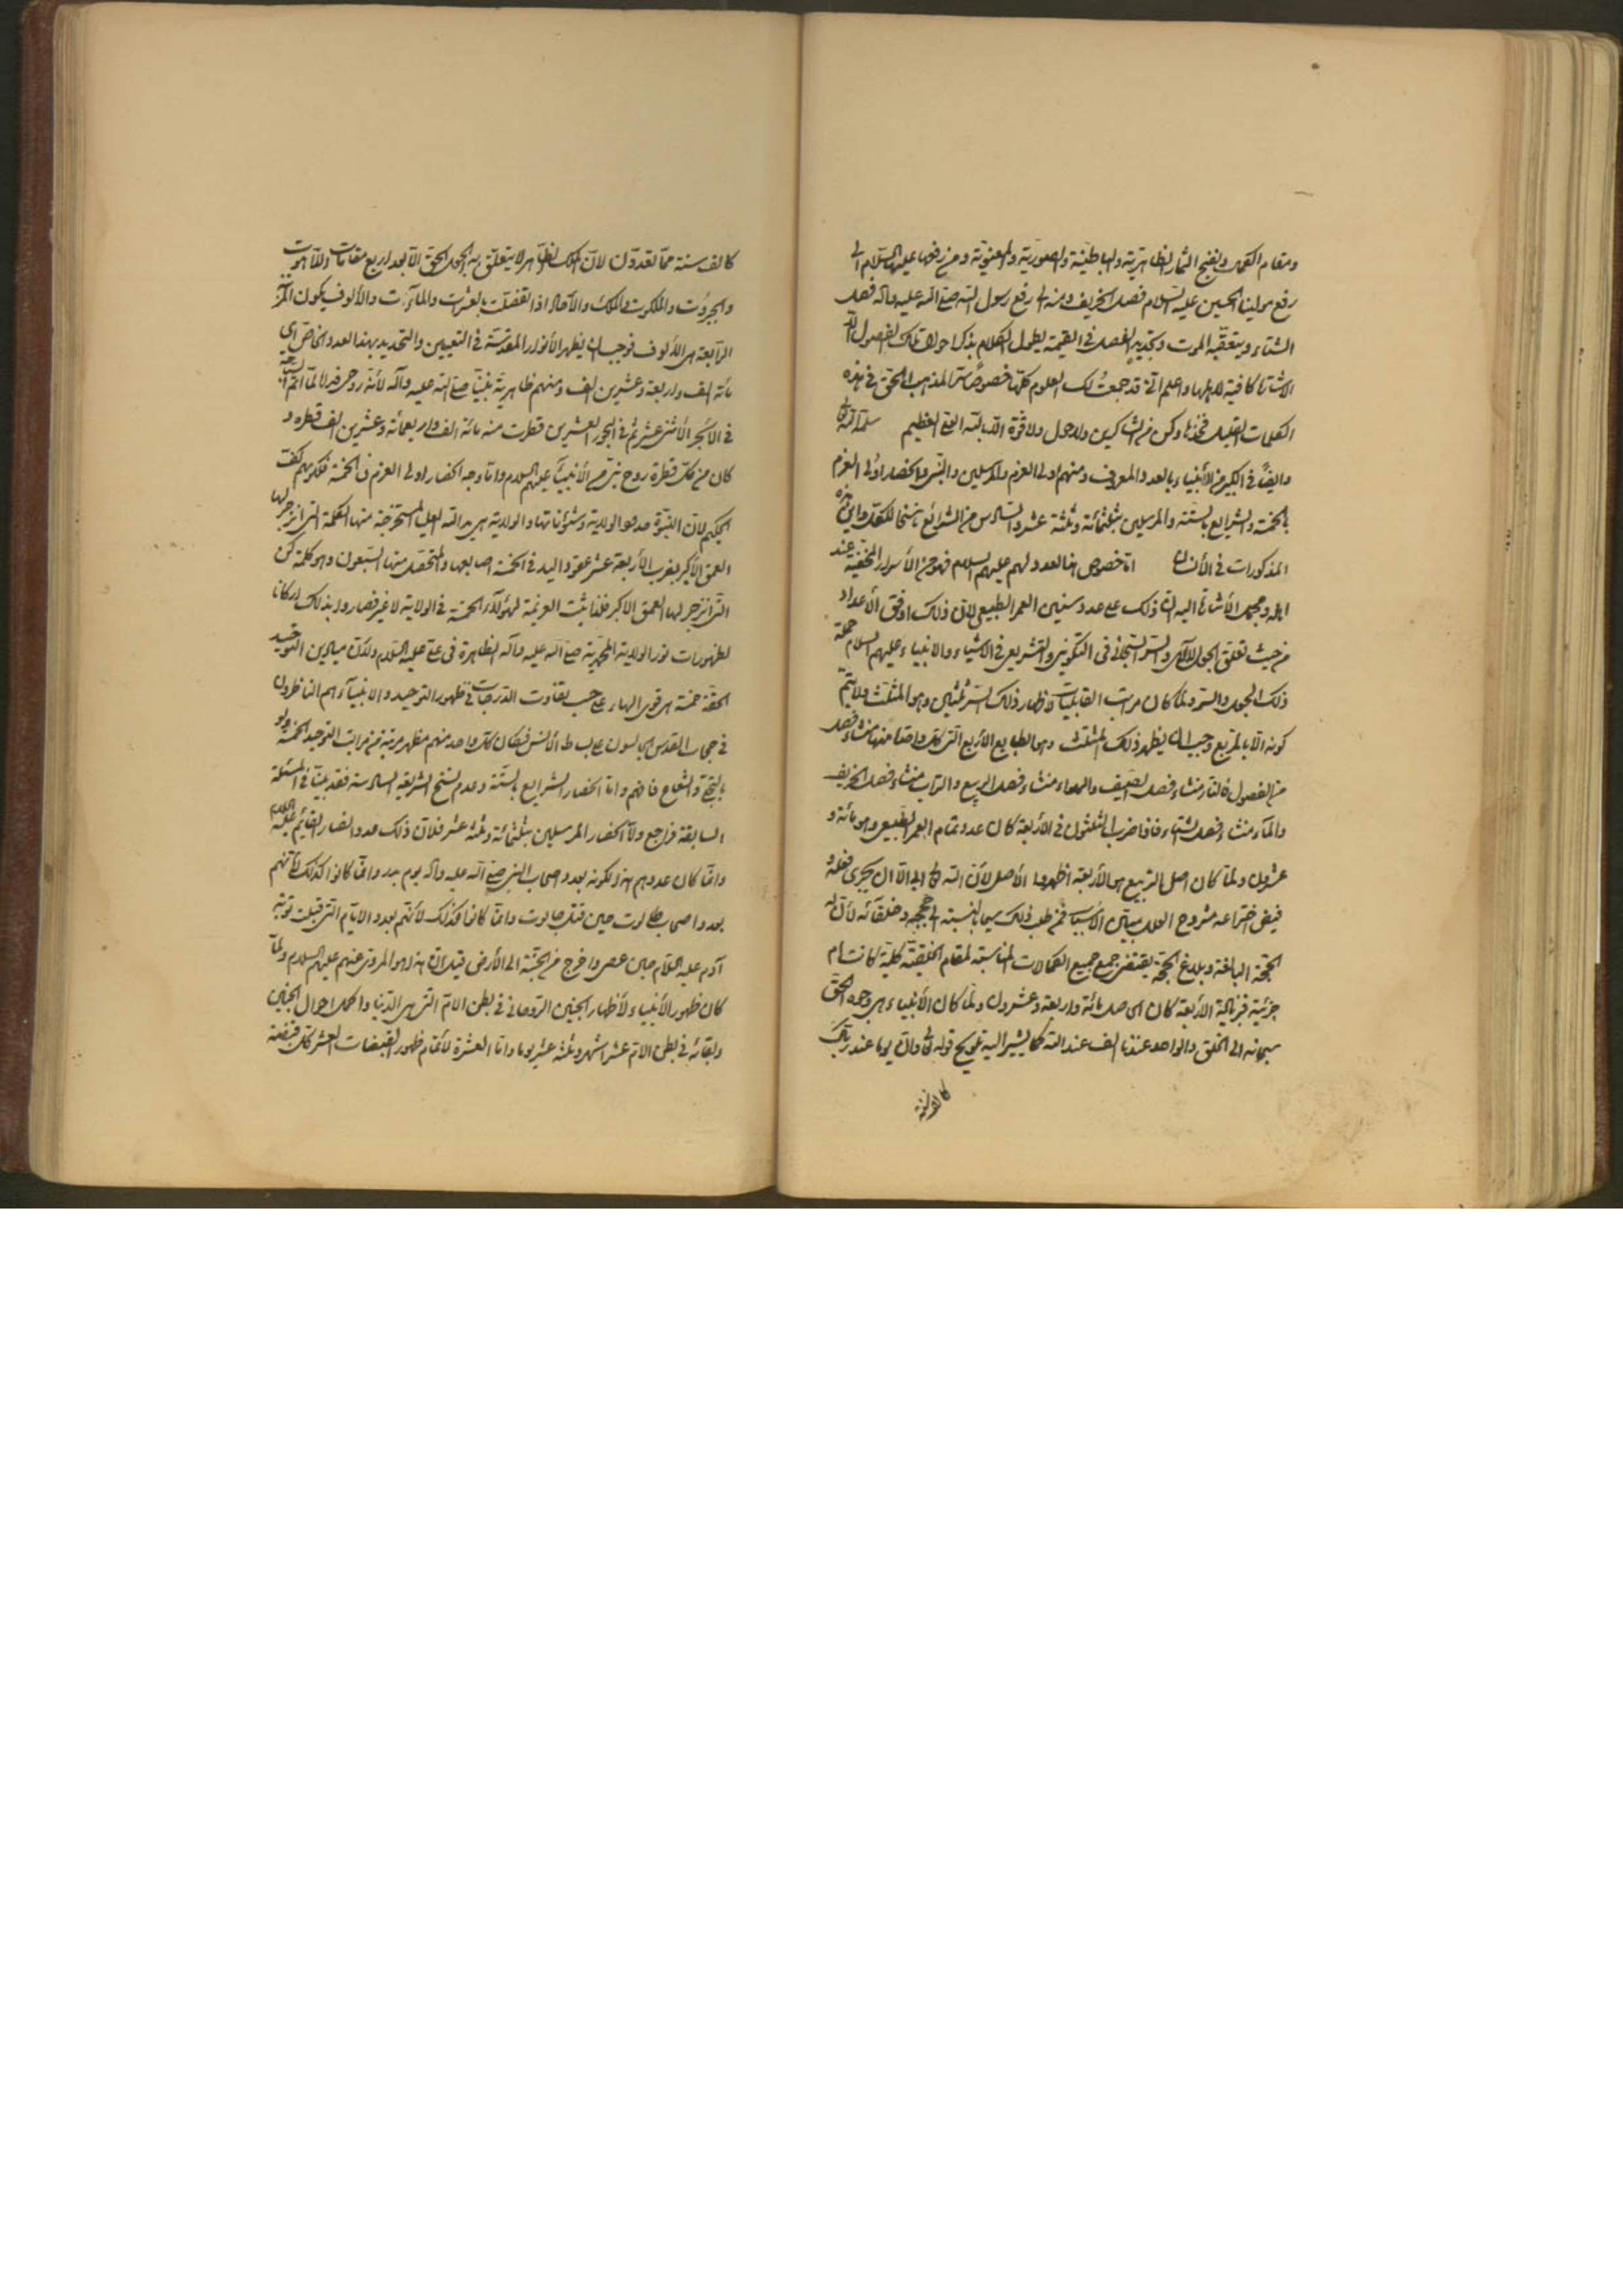 ومقام الكمال ونضج الثمار الظاهرية والباطنية والصورية والمعنوية ومن رفعها عليهم السلام الى
رفع مولينا الحسين عليه السلام فصل الخريف ومنه الى رفع رسول الله صلى الله عليه واله فصل
الشتاء ويتعقبه الموت وتجديد الفصل في القيمة يطول الكلام بذكر احوال تلك الفصول الا
الاشارة كافية لاهلها واعلم اني قد جمعت لك العلوم كلها خصوصا سر المذهب الحق في هذه
الكلمات القليلة فخذها وكن من الشاكرين ولا حول ولا قوة الا بالله العلي العظيم
وايضا في الكبير الأنبياء بالعدد المعروف ومنهم اولى العزم والمرسلين والنبيين وانحصار اولى العزم
بالخمسة والشرايع بالستة والمرسلين بثلثمائة وثلثة عشر والسادس من الشرايع ناسخا للكل واين هذه
المذكورات في الأنسان اما خصوص هذا العدد لهم عليهم السلام فهو من الأسرار المخفية عند
اهله ومجمل الأشارة اليه ان ذلك على عدد سنين العمر الطبيعي لان ذلك اوفق الأعداد
من حيث تعلق الجود الالهي والسر السبحاني في التكوين والتشريع في الاشياء والانبياء عليهم السلام حملة
ذلك الجود والسر ولما كان مراتب القابليات لاظهار ذلك السر ثلثين وهو المثلث ولا يتم
كونه الا بالمربع وجب ان يظهر ذلك المثلث وهو الطبايع الأربع التي كل واحد منها منشاء فصل
من الفصول فالنار منشاء فصل الصيف والهواء منشاء فصل الربيع والتراب منشاء فصل الخريف
والماء منشاء فصل الشتاء فاذا ضرب الثلثون في الأربعة كان عدد تمام العمر الطبيعي وهو مائة و
عشرون ولما كان اصل التربيع هو الأربعة اظهروا الأصل لأن الله تعالى ابى الا ان يجرى فعله و
فيض اختراعه مشروح العلل مبين الاسباب فمن طلب ذلك سيما بالنسبة الى حججه وخلفائه لأن له
الحجة البالغة وبلاغ الحجة يقتضي جمع جميع الكمالات المناسبة لمقام الخليفة كلية كانت ام
جزئية فبزيادة الأربعة كان الحاصل مائة واربعة وعشرون ولما كان الأنبياء هم وجه الحق
سبحانه الى الخلق والواحد عندنا الف عند الله كما يشير اليه تلويح قوله تعالى وان يوما عند ربك
كالف سنة
كالف سنة مما تعدون لان الملك الظاهر لا يتعلق به الجود الحق الا بعد اربع مقامات اللاهوت
والجبروت والملكوت والملك والآحاد اذا تفصلت بالعشرات والمآت والألوف يكون المرتبة
الرابعة هي الألوف فوجب ان يظهر الأنوار المقدسة في التعيين والتحديد بهذا العدد الخاص اى
مائة الف واربعة وعشرين الف ومنهم ظاهرية نبينا صلى الله عليه وآله لأنه روحي فداه لما اتم السباحة
في الأبحر الأثني عشر ثم في البحور العشرين قطرت منه مائة الف واربعمائة وعشرين الف قطرة و
كان من كل قطرة روح نبي من الأنبياء عليهم السلام واما وجه انحصار اولى العزم في الخمسة فلكونهم كف
الحكيم لان النبوة هو الولاية وشؤناتها والولاية هي يد الله العليا المستخرجة منها الكلمة التي انزجر لها
العمق الأكبر بضرب الأربعة عشر عقود اليد في الخمسة اصابعها والمتحصل منها السبعون وهو كلمة كن
التي انزجر لها العمق الاكبر فلذا ثبت العزيمة لهؤلاء الخمسة في الولاية لا غير فصاروا بذلك اركانا
لظهورات نور الولاية المحمدية صلى الله عليه وآله الظاهرة في علي عليه السلام ولأن ميادين التوحيد
الحقة خمسة هي قوى الهاء على حسب تفاوت الدرجات في ظهور التوحيد والانبياء هم الناظرون
في حجاب القدس الجالسون على بساط الأنس فكان كل واحد منهم مظهر مرتبة من مراتب التوحيد الخمسة ولو
بالتبعية والشعاع فافهم واما انحصار الشرايع بالستة وعدم نسخ الشريعة السادسة فقد بينا في المسئلة
السابقة فراجع واما انحصار المرسلين بثلثمائة وثلثة عشر فلان ذلك عدد انصار القائم عليه السلام
وانما كان عددهم هذا لكونه بعدد اصحاب النبي صلى الله عليه واله يوم بدر وانما كانوا كذلك لأنهم
بعدد اصحاب طالوت حين قتل جالوت وانما كانوا كذلك لأنهم بعدد الايام التي قبلت توبة
آدم عليه السلام حين عصى واخرج من الجنة الى الأرض قيل ان هذا هو المروى عنهم عليهم السلام ولما
كان ظهور الأنبياء لأظهار الجنين الروحاني في بطن الام التي هي الدنيا واكمل احوال الجنين
وبقائه في بطن الام عشر اشهر وثلثة عشر يوما واما العشرة لأتمام ظهور القبضات العشر كل قبضة